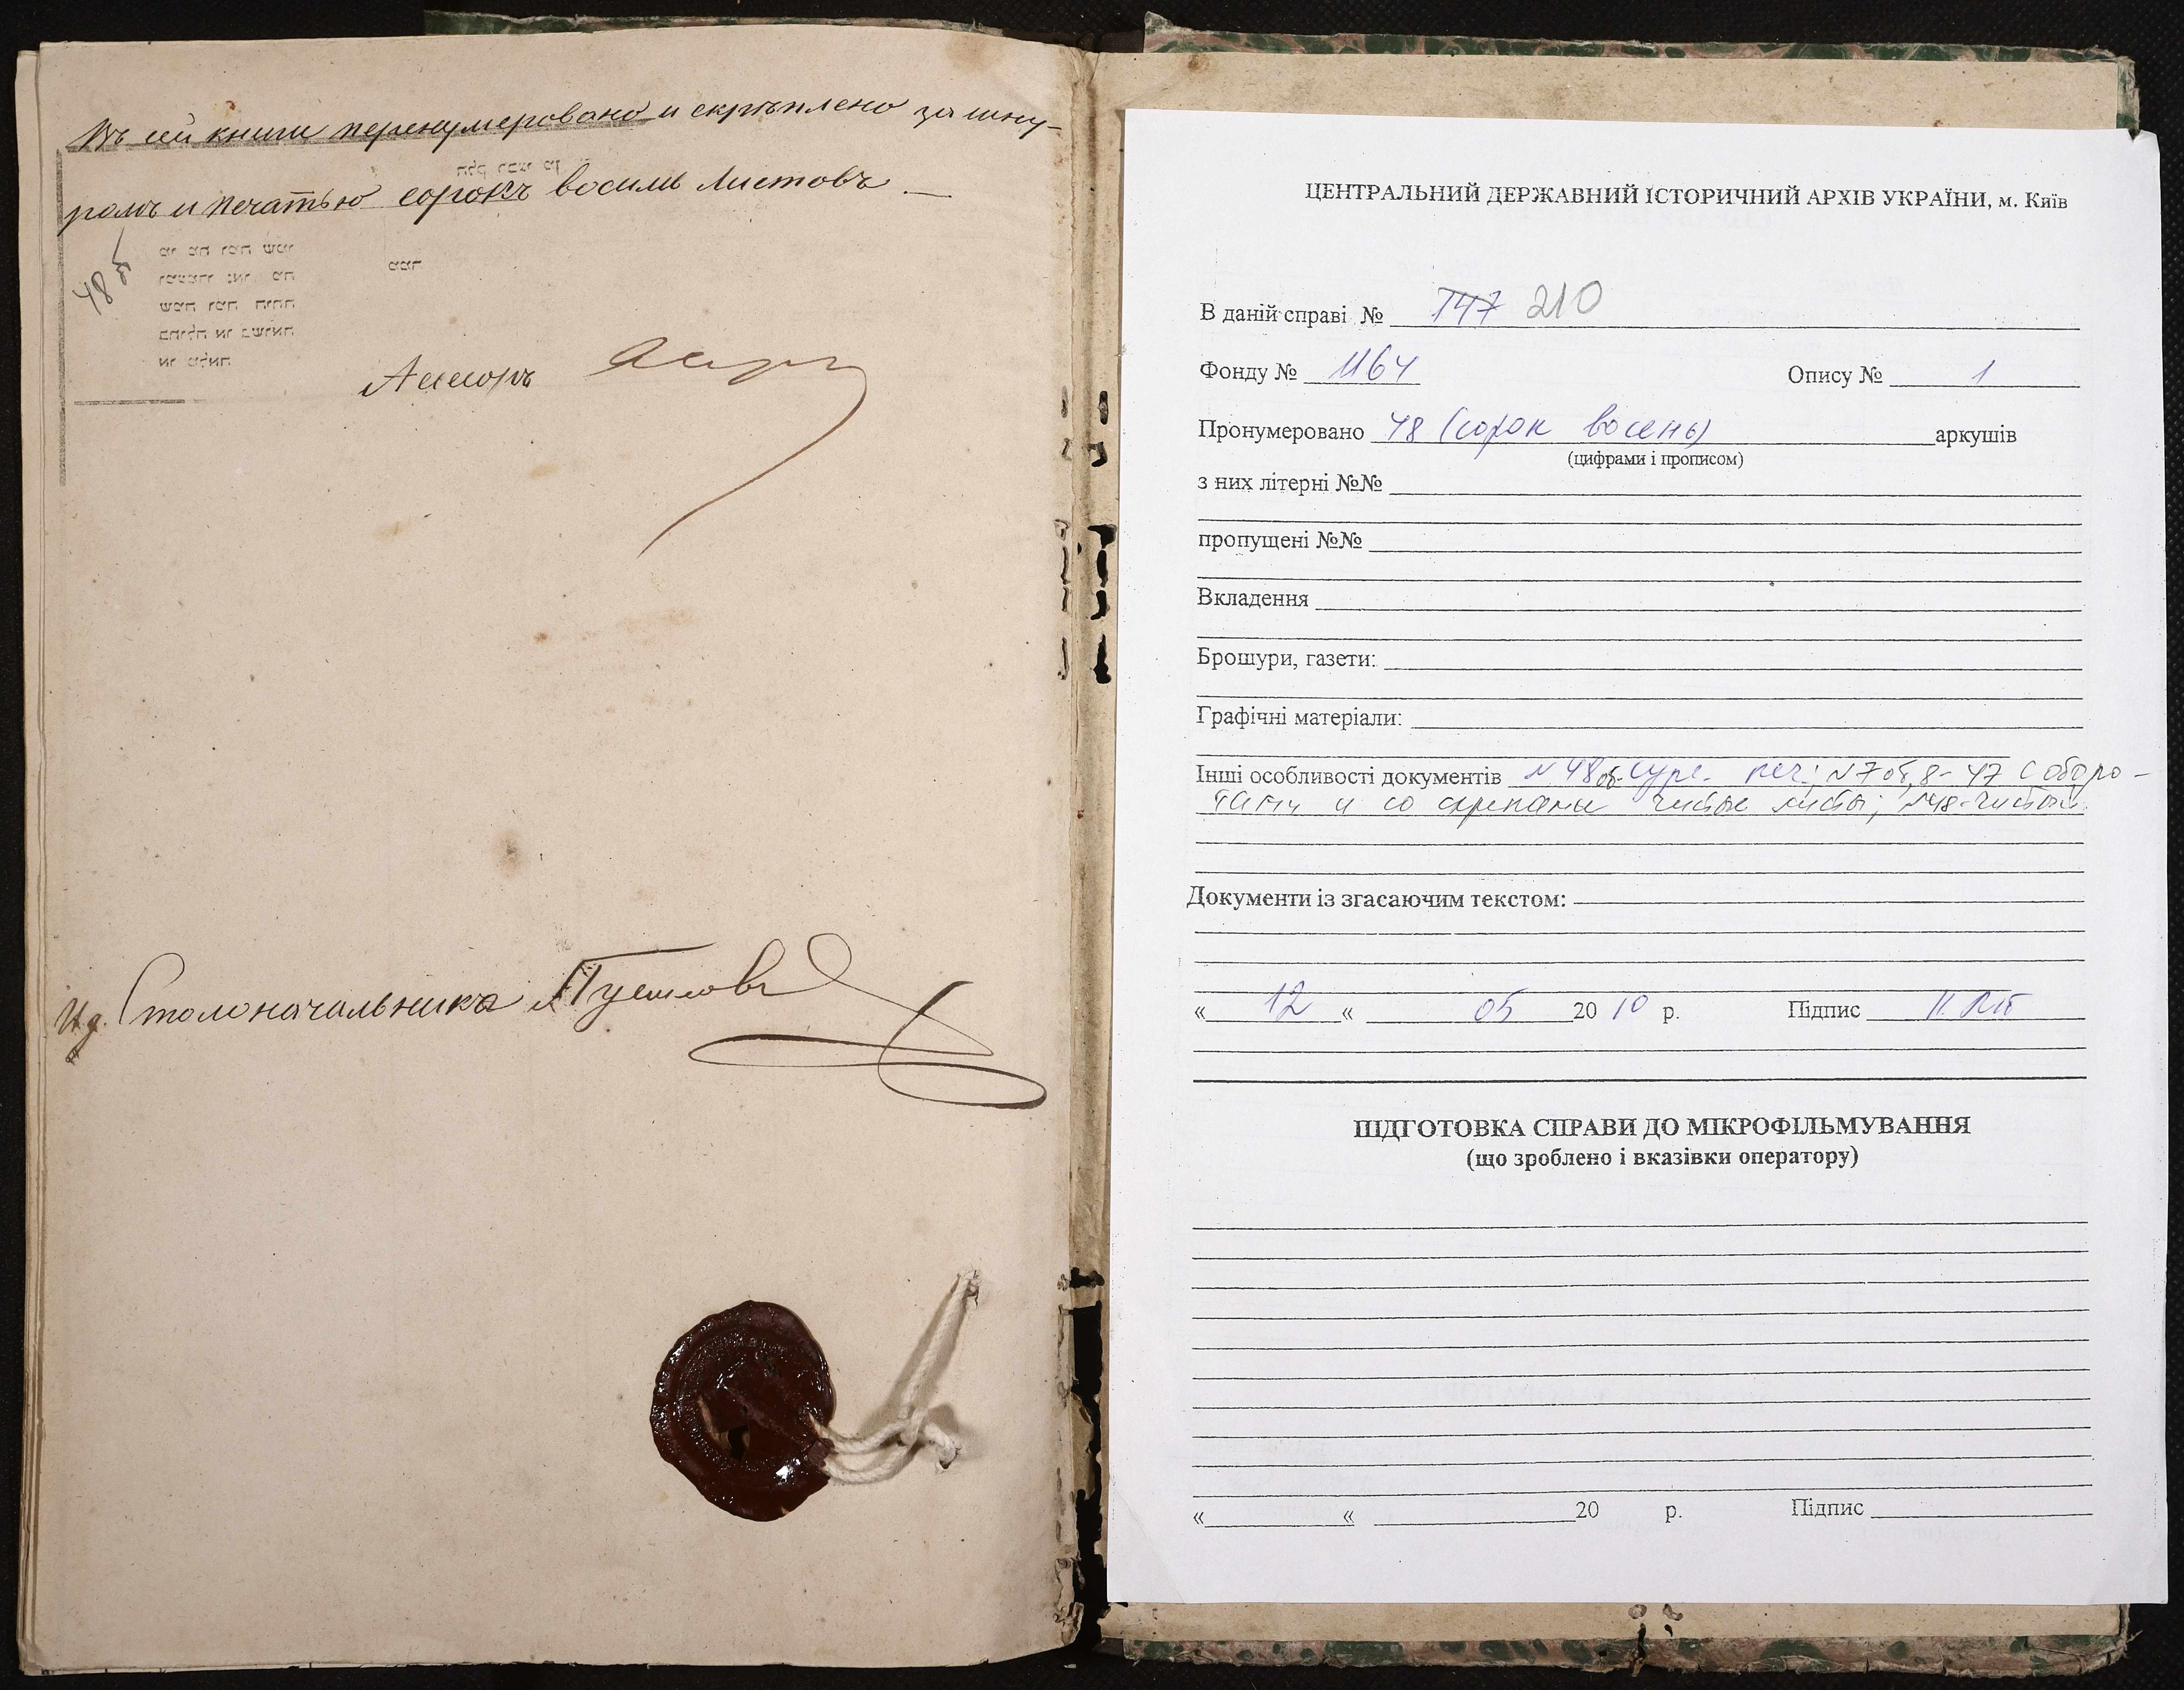 Въ сей книги перенумеровано и скрѣплено за шну-
ромъ и печатью сорокъ восемь листовъ. —
48
Ассесоръ
И д. Столоначальника
ЦЕНТРАЛЬНИЙ ДЕРЖАВНИЙ ІСТОРИЧНИЙ АРХІВ УКРАЇНИ, м. Київ
В даній справі № 147 210
Фонду № 1164 Опису № 1
Пронумеровано 48 (сорок восемь) аркушів
(цифрами і прописом)
з них літерні №№
пропущені №№
Вкладення
Брошури, газети:
Графічні матеріали:
Інші особливості документів N 48 об- сург. печ.; N 7 об, 8- 47 с оборо-
тами и со скрепами чистые листы; N48-чистый
Документи із згасаючим текстом:
« 12 « 05 20 10 р. Підпис
ПІДГОТОВКА СПРАВИ ДО МІКРОФІЛЬМУВАННЯ
(що зроблено і вказівки оператору)
« « 20 р. Підпис